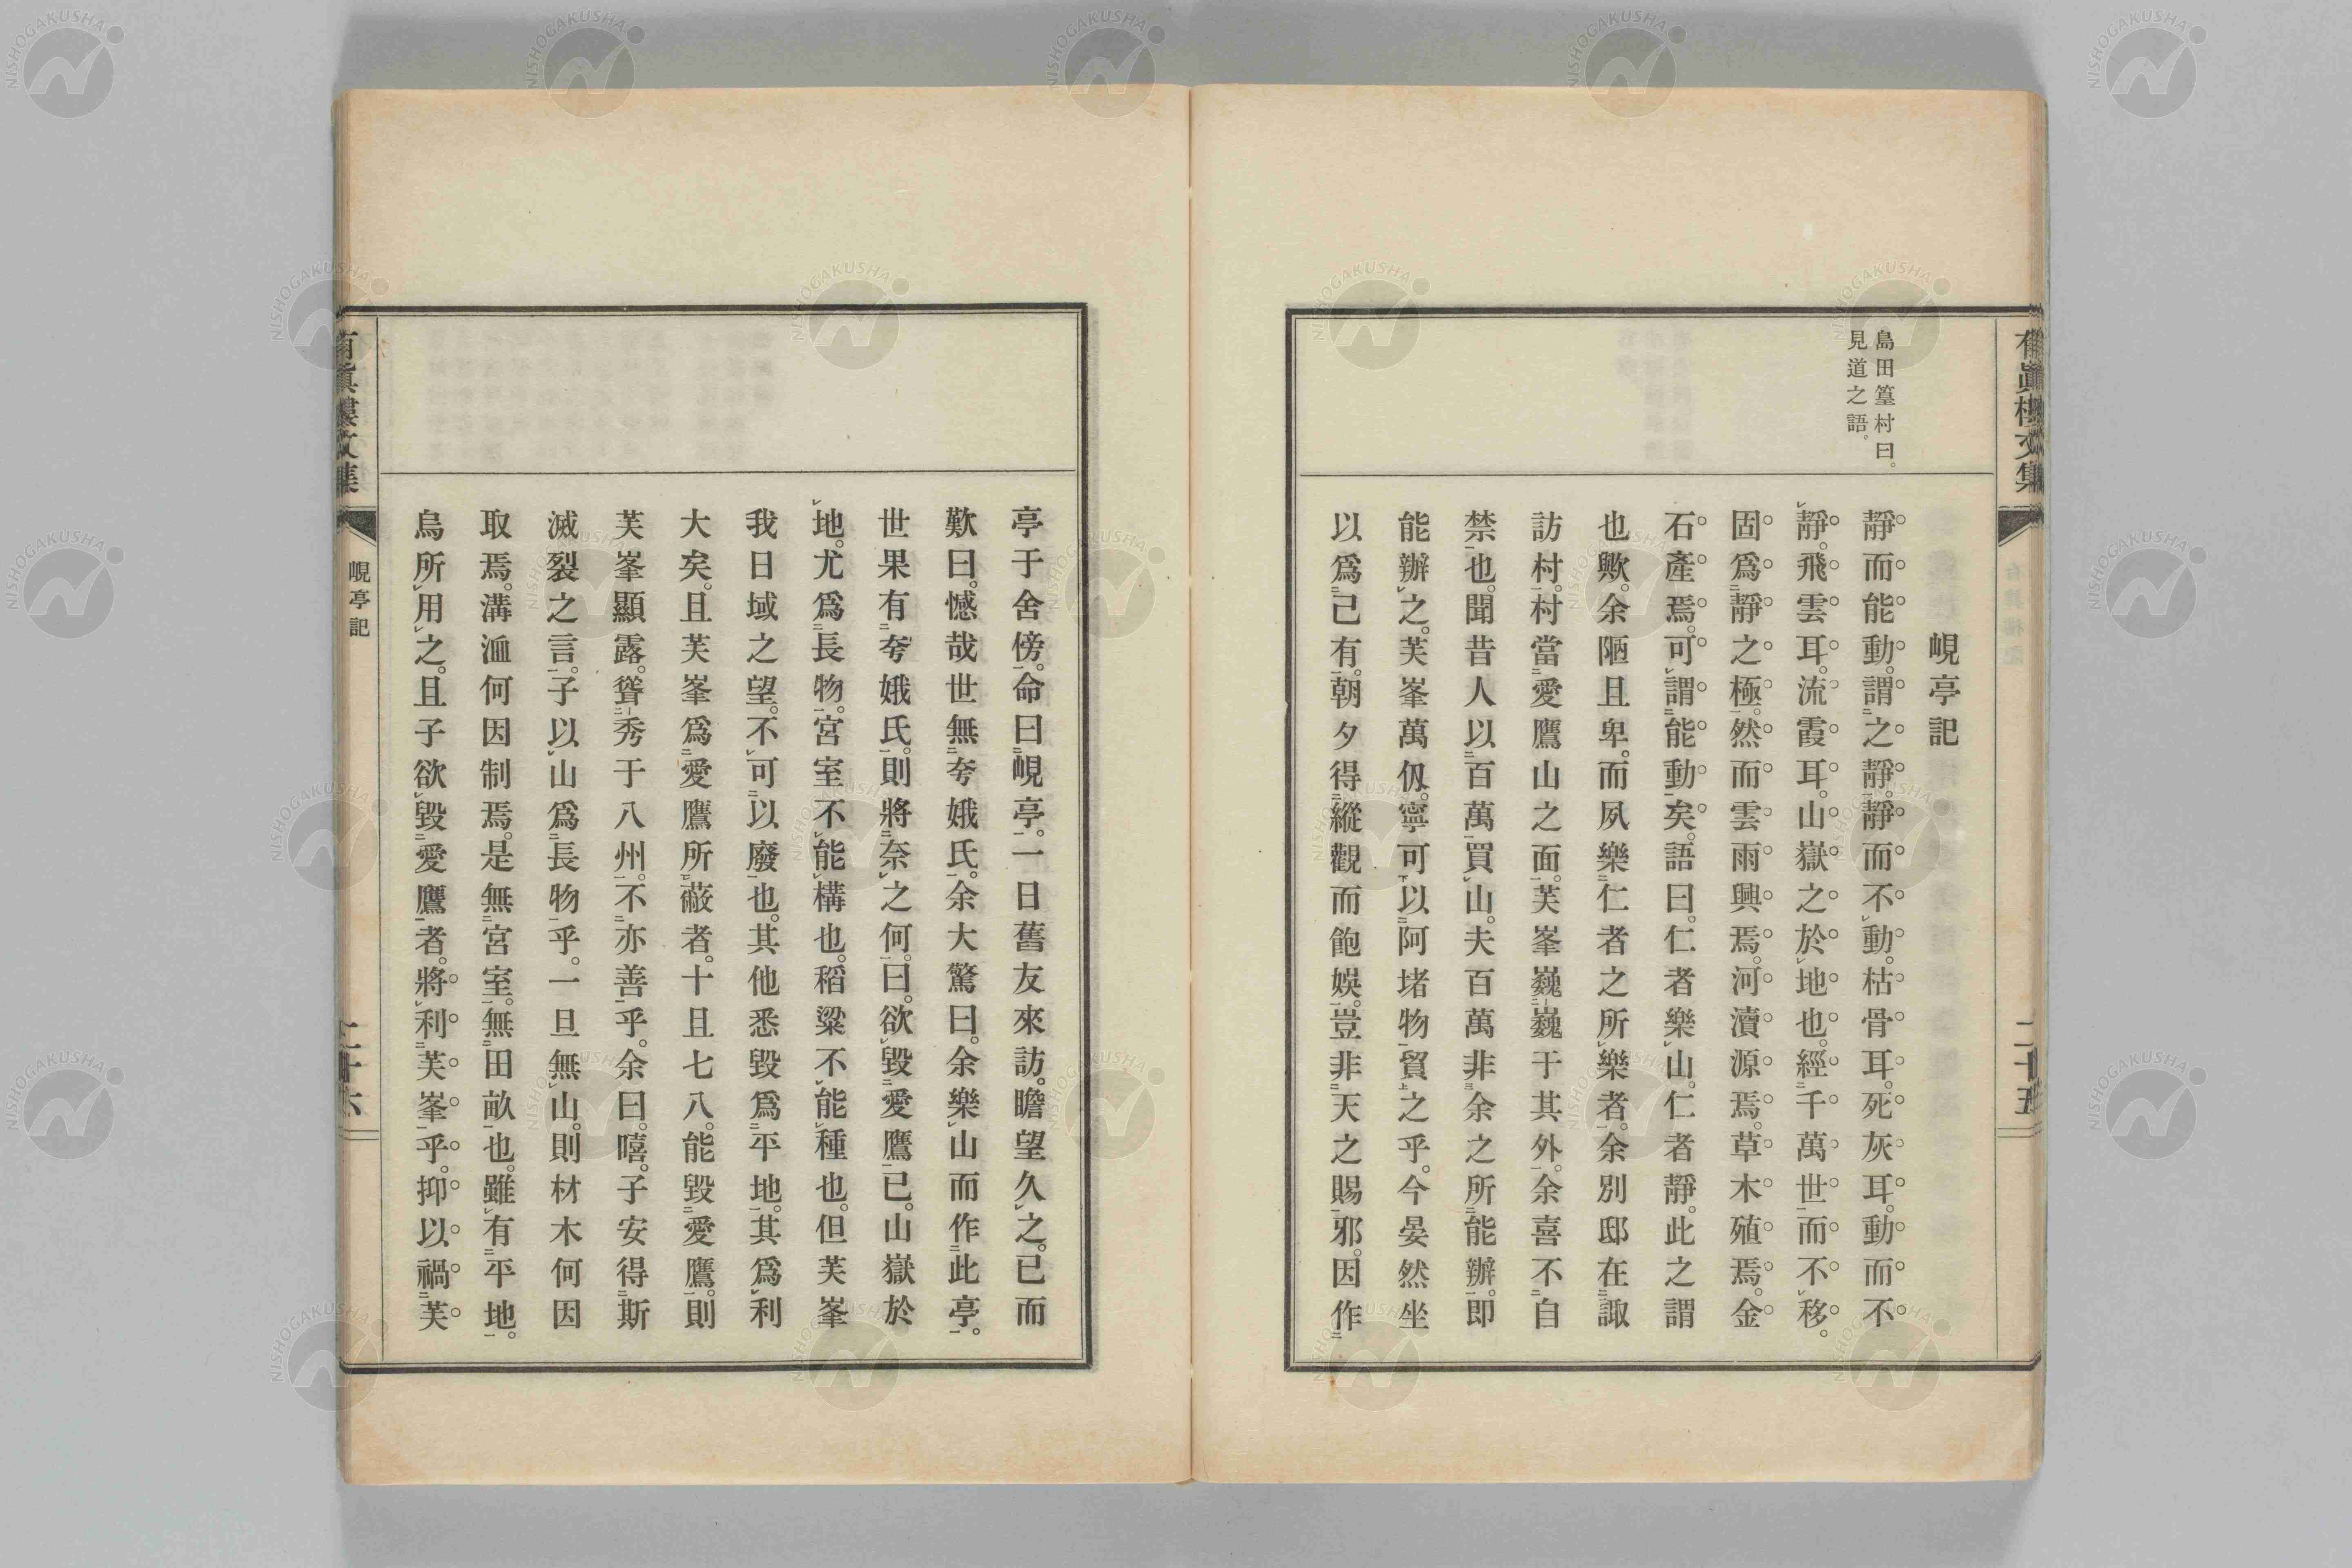 有眞樓文集
二十五
島田篁村曰。
見道之語。
峴亭記
靜而能動。謂之靜。靜而不動。枯骨耳。死灰耳。動而不
靜。飛雲耳。流霞耳。山嶽之於地也。經千萬世而不移。
固爲靜之極。然而雲雨興焉。河瀆源焉。草木殖焉。金
石產焉。可謂能動矣。語曰。仁者樂山。仁者靜。此之謂
也歟。余陋且卑。而夙樂仁者之所樂者。余別邸在諏
訪村。村當愛鷹山之面。芙峯巍巍于其外。余喜不自
禁也。聞昔人以百萬買山。夫百萬非余之所能辦。即
能辦之。芙峯萬仭。寧可以阿堵物貿之乎。今晏然坐
以爲己有。朝夕得縱觀而飽娛。豈非天之賜邪。因作
亭于舍傍。命曰峴亭。一日舊友來訪。瞻望久之。已而
歎曰。憾哉世無夸娥氏。余大驚曰。余樂山而作此亭。
世果有夸娥氏。則將奈之何。曰。欲毀愛鷹已。山嶽於
地。尤爲長物。宮室不能構也。稻粱不能種也。但芙峯
我日域之望。不可以廢也。其他悉毀爲平地。其爲利
大矣。且芙峯爲愛鷹所蔽者。十且七八。能毀愛鷹。則
芙峯顯露。聳秀于八州。不亦善乎。余曰。嘻。子安得斯
滅裂之言。子以山爲長物乎。一旦無山。則材木何因
取焉。溝洫何因制焉。是無宮室。無田畝也。雖有平地。
烏所用之。且子欲毀愛鷹者。將利芙峯乎。抑以禍芙
有眞樓文集
峴亭記
二十六
NISHOGAKUSHA